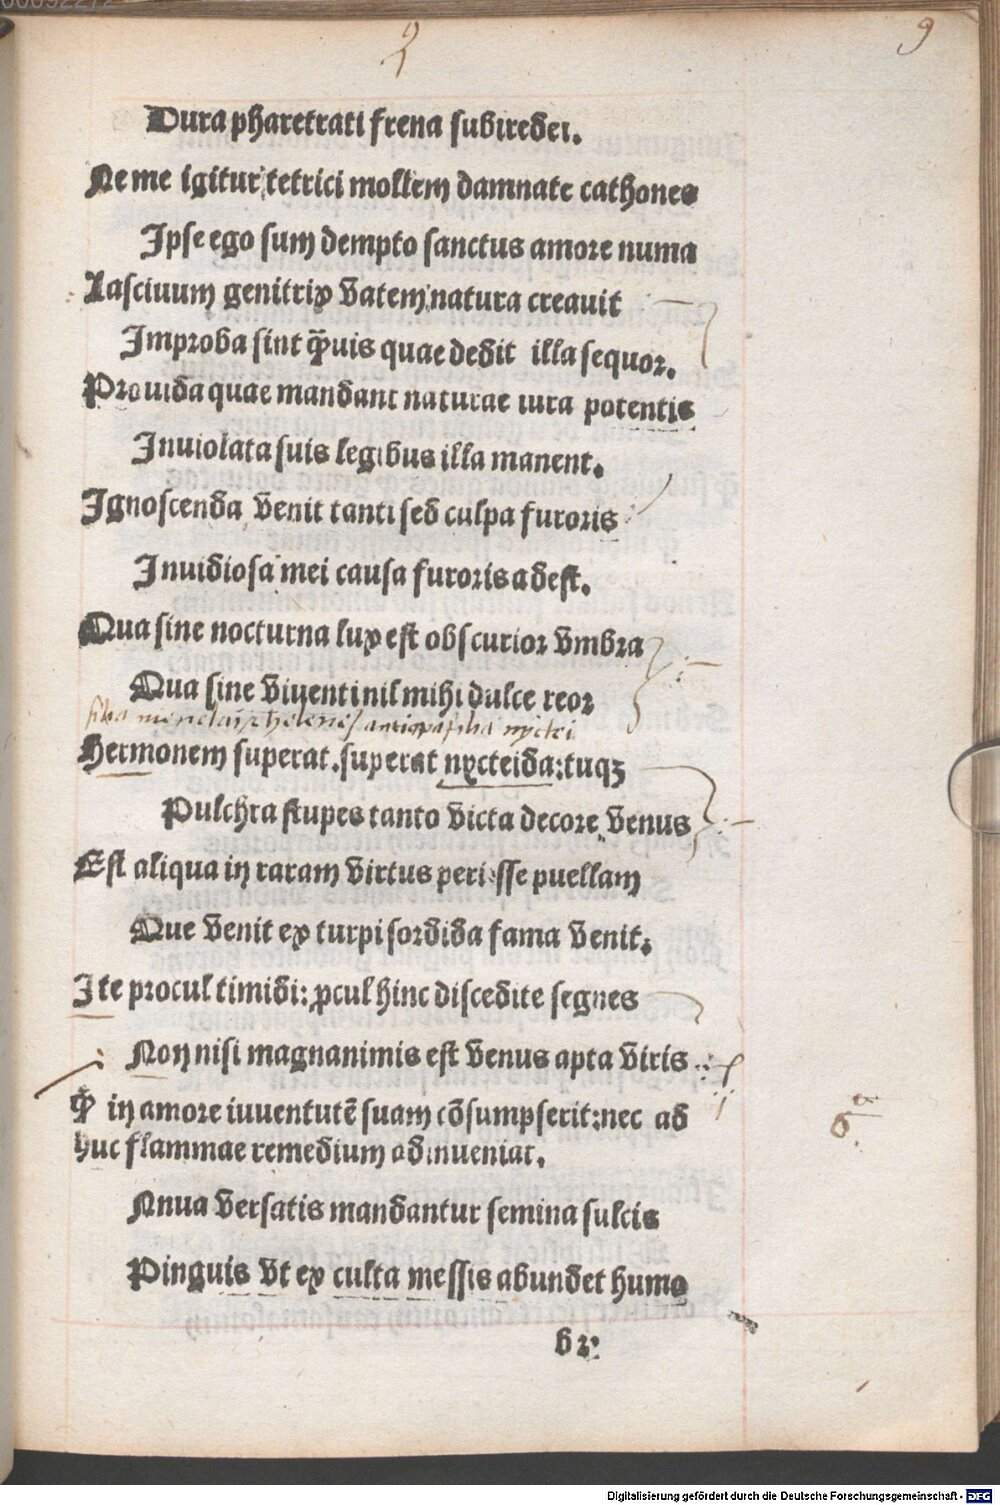 9
9
Dura pharetrati frena subiredei.
Ne me igitur tetrici mollem damnate cathones
Ipse ego sum dempto sanctus amore numa
Lascivum genitrix vatem natura creavit
Improba sint q̃vis quae dedit illa sequor.
Provida quae mandant naturae iura potentis
Inviolata suis legibus illa manent.
Ignoscenda venit tanti sed culpa furoris
Invidiosa mei causa furoris adest.
Qua sine nocturna lux est obscurior vmbra
Qua sine viventi nil mihi dulce reor
filia menelai & helenes antiopa filia nyctei
Hermonem superat. superat nycteida: tuqꝫ
Pulchra stupes tanto victa decore venus
Est aliqua in raram virtus periisse puellam
Que venit ex turpi sordida fama venit.
Ite procul timidi: ꝓcul hinc discedite segnes
Non nisi magnanimis est venus apta viris
Q̃ in amore iuventutē suam cōsumpserit: nec ad
huc flammae remedium adinveniat.
Annua versatis mandantur semina sulcis
Pinguis vt ex culta messis abundet humo
b 2
Digitalisierung gefördert durch die Deutsche Forschungsgemeinschaft - DFG